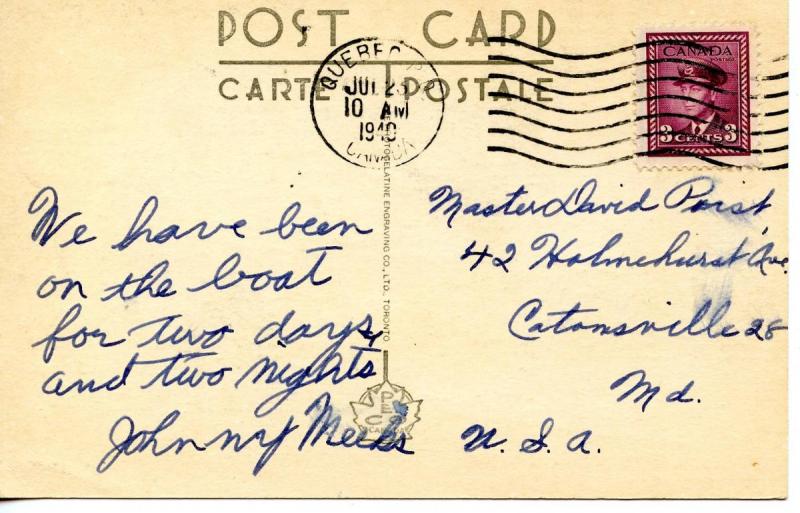 POST CARD
CARTE POSTALE
QUEBEC
10 AM
CANADA
CANADA
POSTAGE
3 CENTS 3
We have been
on the boat
for two days
and two nights
Johnny Meeks
PHOTOGELATINE ENGRAVING CO., LTD., TORONTO
PECO
CANADA
Master David Porst,
42 Holmehurst Ave.
Catonsville 28
Md.
U. S. A.